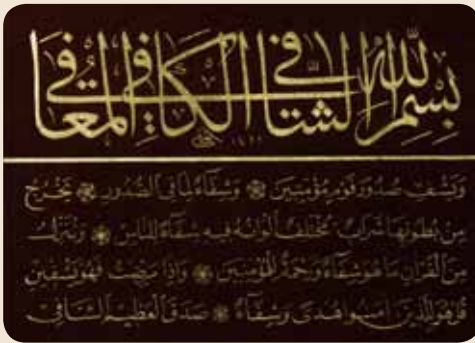 بسم الله الشافي الكافي المعافي
وَيَشْفِ صُدُورَ قَوْمٍ مُؤْمِنِينَ ۞ وَشِفَاءٌ لِمَا فِي الصُّدُورِ ۞ يَخْرُجُ
مِنْ بُطُونِهَا شَرَابٌ مُخْتَلِفٌ أَلْوَانُهُ فِيهِ شِفَاءٌ لِلنَّاسِ ۞ وَنُنَزِّلُ
مِنَ الْقُرْآنِ مَا هُوَ شِفَاءٌ وَرَحْمَةٌ لِلْمُؤْمِنِينَ ۞ وَإِذَا مَرِضْتُ فَهُوَ يَشْفِينِ
قُلْ هُوَ لِلَّذِينَ آمَنُوا هُدًى وَشِفَاءٌ ۞ صَدَقَ الْعَظِيمُ الشَّافِي